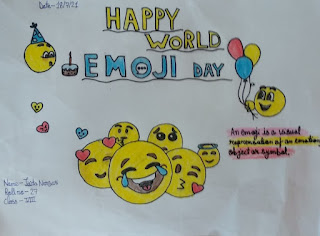 Date- 18/7/21
HAPPY
WORLD
EMOJI DAY
An emoji is a visual
representation of an emotion,
object or symbol.
Name-
Roll no - 27
Class - VIII